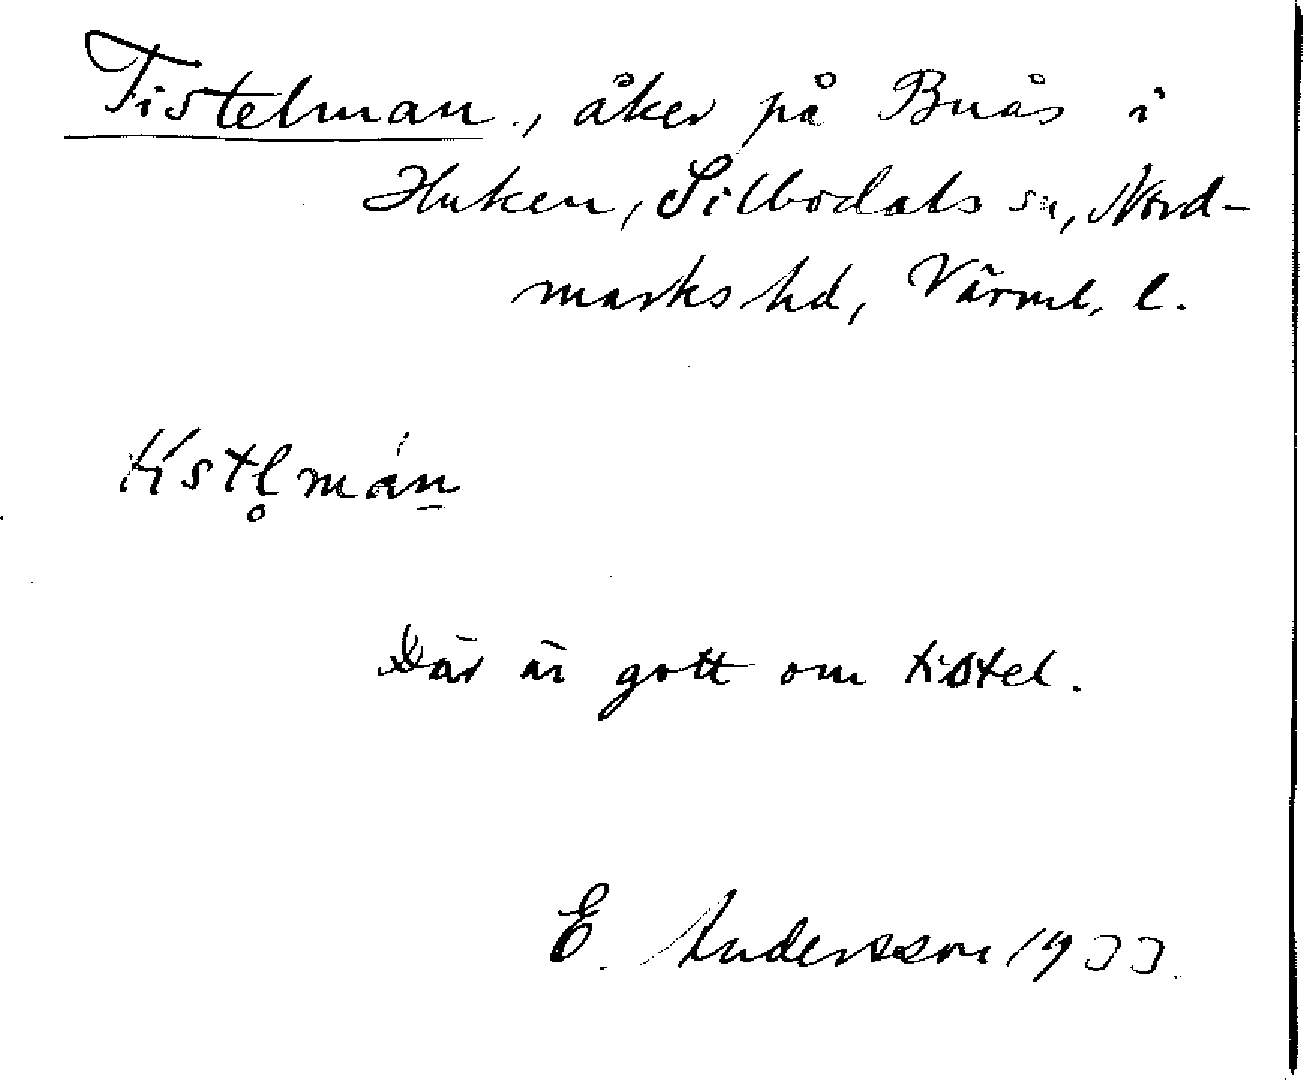 Tistelman, åker på Buås i
Huken, Silbodals sn, Nord-
marks hd, Värml. l.
tistl̥mán̠
Där är gott om tistel.
E. Andersson 1933.